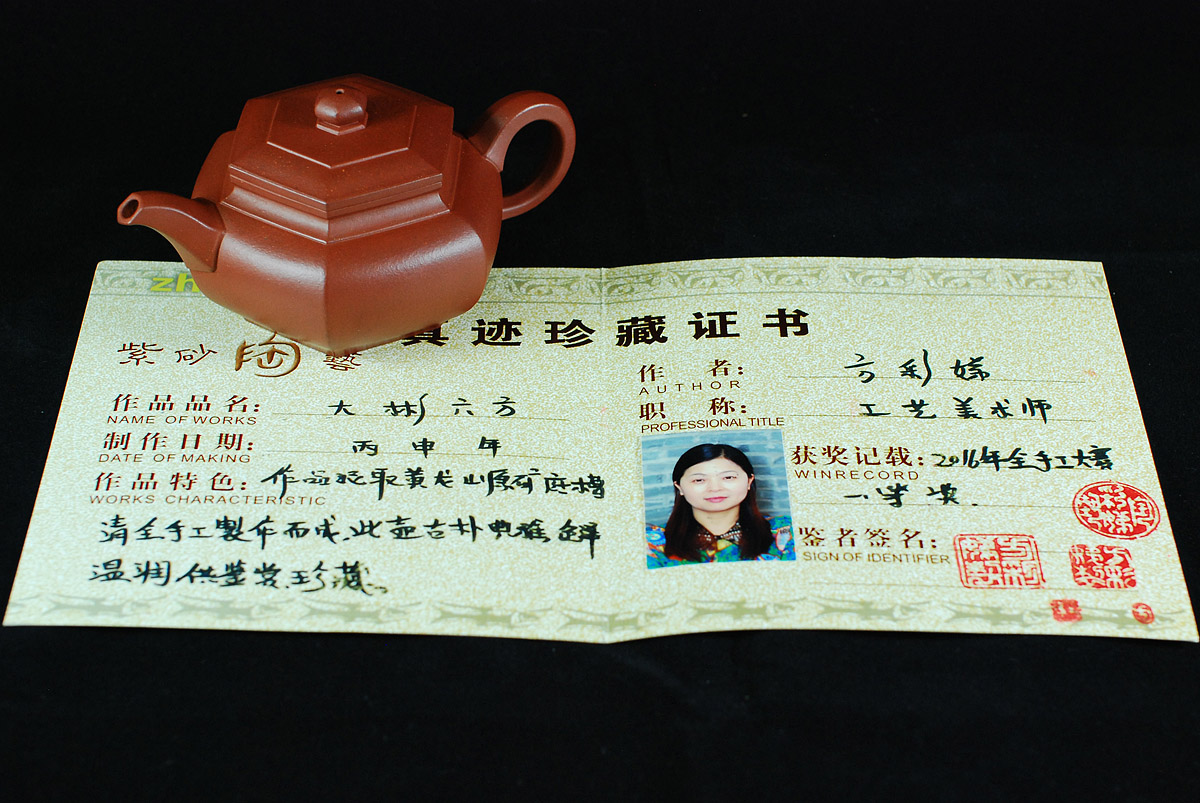 zh
真迹珍藏证书
紫砂陶藝
作品品名：大彬六方
NAME OF WORKS
制作日期：丙申年
DATE OF MAKING
作品特色：作品选取黄龙山原矿底槽
WORKS CHARACTERISTIC
清全手工製作而成，此壶古朴典雅
温润供鉴赏珍藏。
作者：方彩婦
AUTHOR
职称：工艺美术师
PROFESSIONAL TITLE
获奖记载：2016年全手工大赛
WINRECORD
一等奖.
鉴者签名：
SIGN OF IDENTIFIER